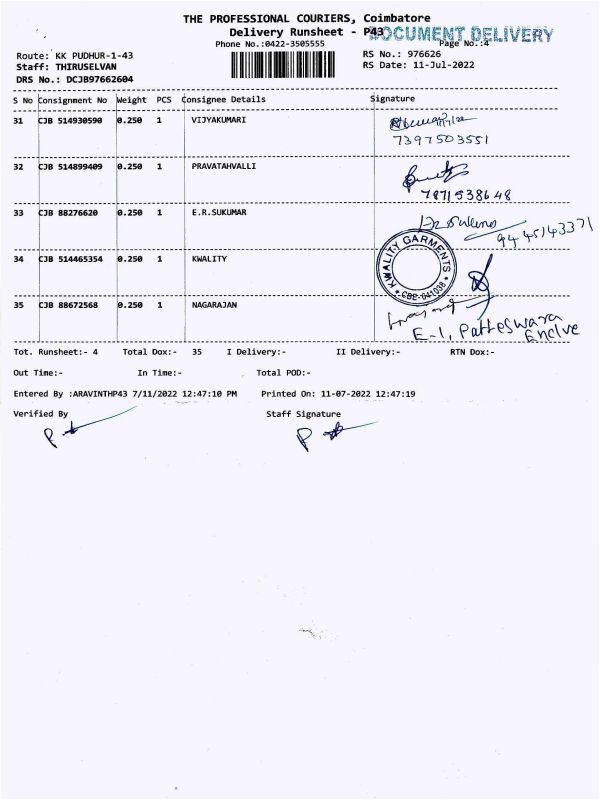 THE PROFESSIONAL COURIERS, Coimbatore
Delivery Runsheet - P43
DOCUMENT DELIVERY
Phone No.:0422-3505555
Page No.:4
Route: KK PUDHUR-1-43
RS No.: 976626
Staff: THIRUSELVAN
RS Date: 11-Jul-2022
DRS No.: DCJB97662604
S No Consignment No Weight PCS Consignee Details Signature
31 CJB 514930590 0.250 1 VIJYAKUMARI
7397503551
32 CJB 514899409 0.250 1 PRAVATAHVALLI
7871538648
33 CJB 88276620 0.250 1 E.R.SUKUMAR
9445143371
34 CJB 514465354 0.250 1 KWALITY
KWALITY GARMENTS
* CBE-641038 *
35 CJB 88672568 0.250 1 NAGARAJAN
E-1, Patteswara
Enclve
Tot. Runsheet:- 4 Total Dox:- 35 I Delivery:- II Delivery:- RTN Dox:-
Out Time:- In Time:- Total POD:-
Entered By :ARAVINTHP43 7/11/2022 12:47:10 PM Printed On: 11-07-2022 12:47:19
Verified By Staff Signature